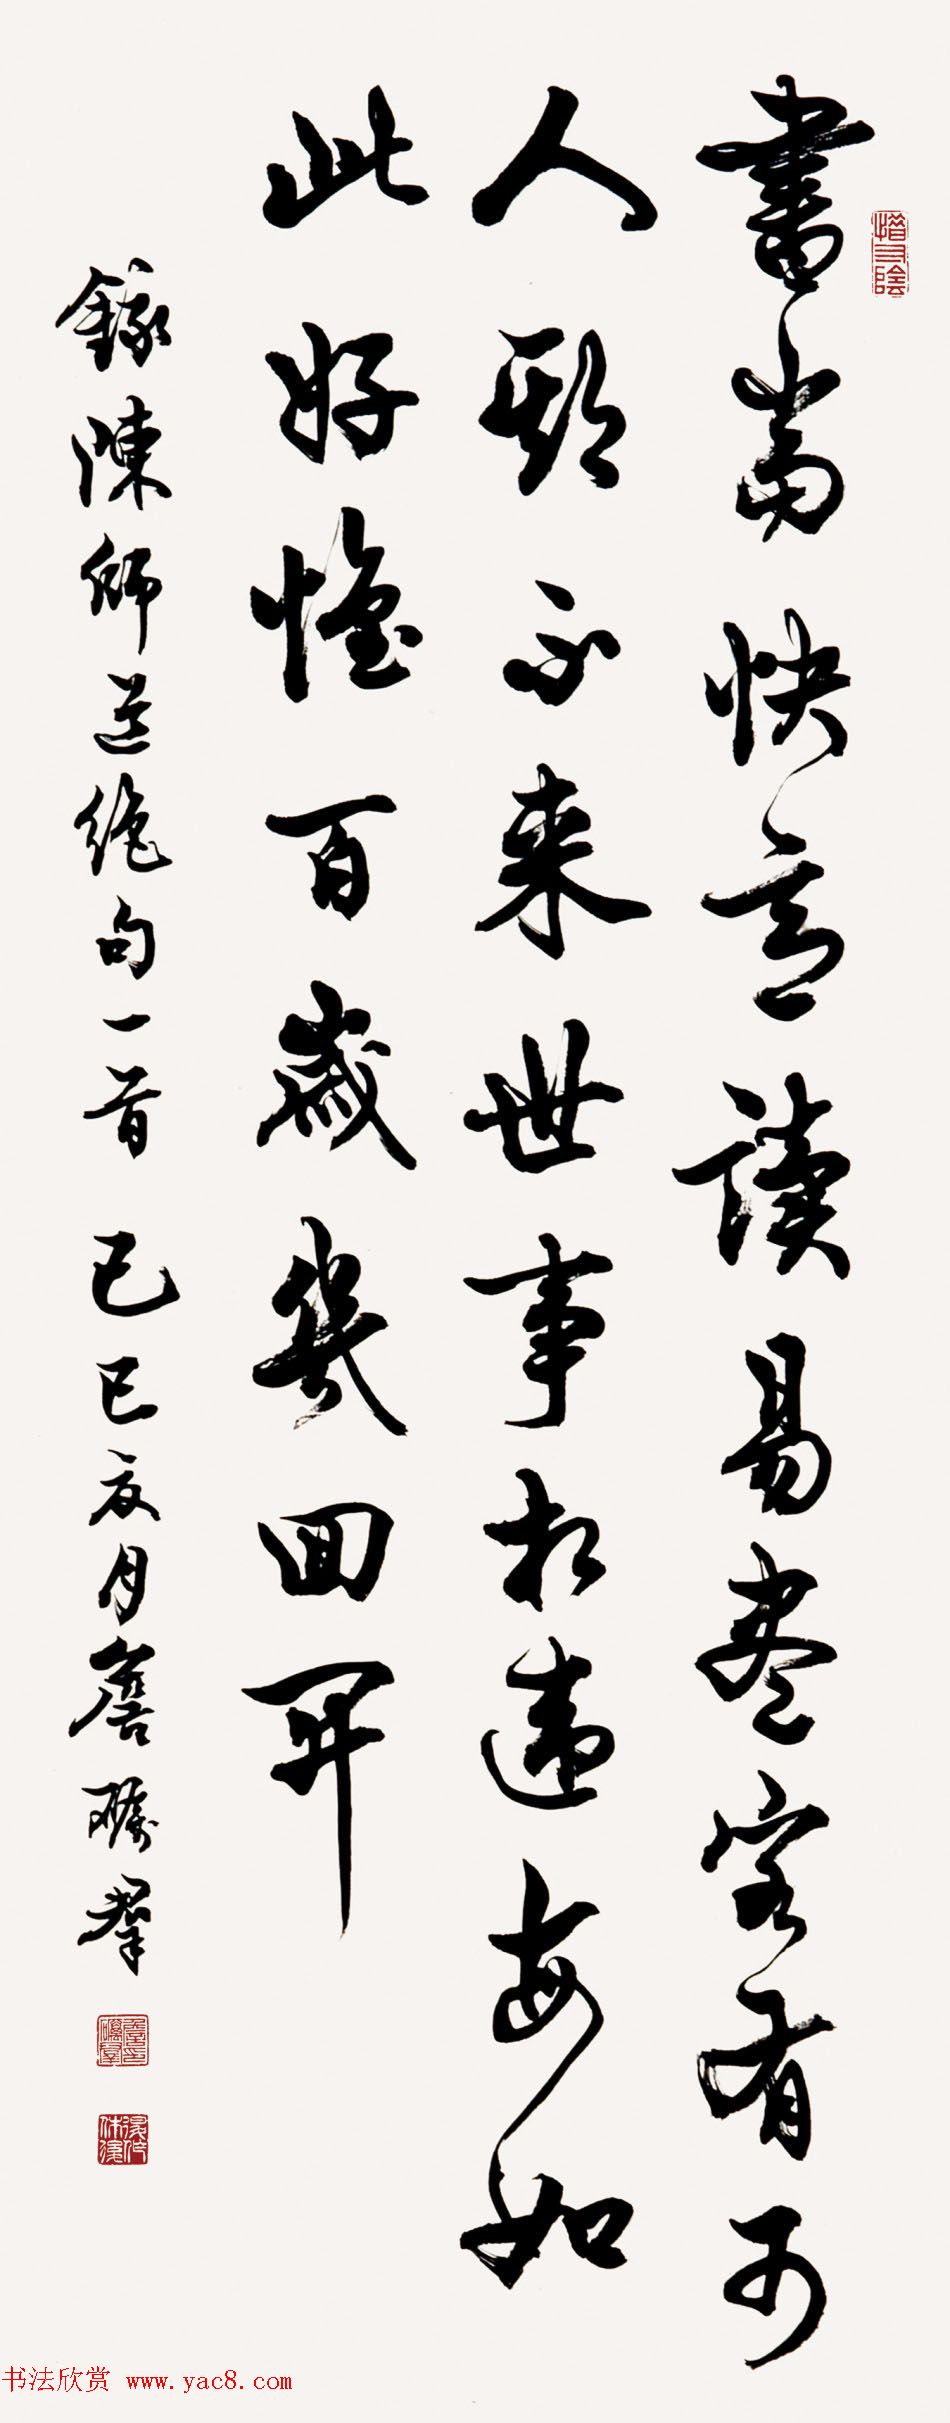 書當快意讀易盡客有可
人期不来世事相違每如
此好懷百歲幾囬開
錄陳師道絶句一首 己巳夏月詹礪羣
惜寸陰
书法欣赏 www.yac8.com